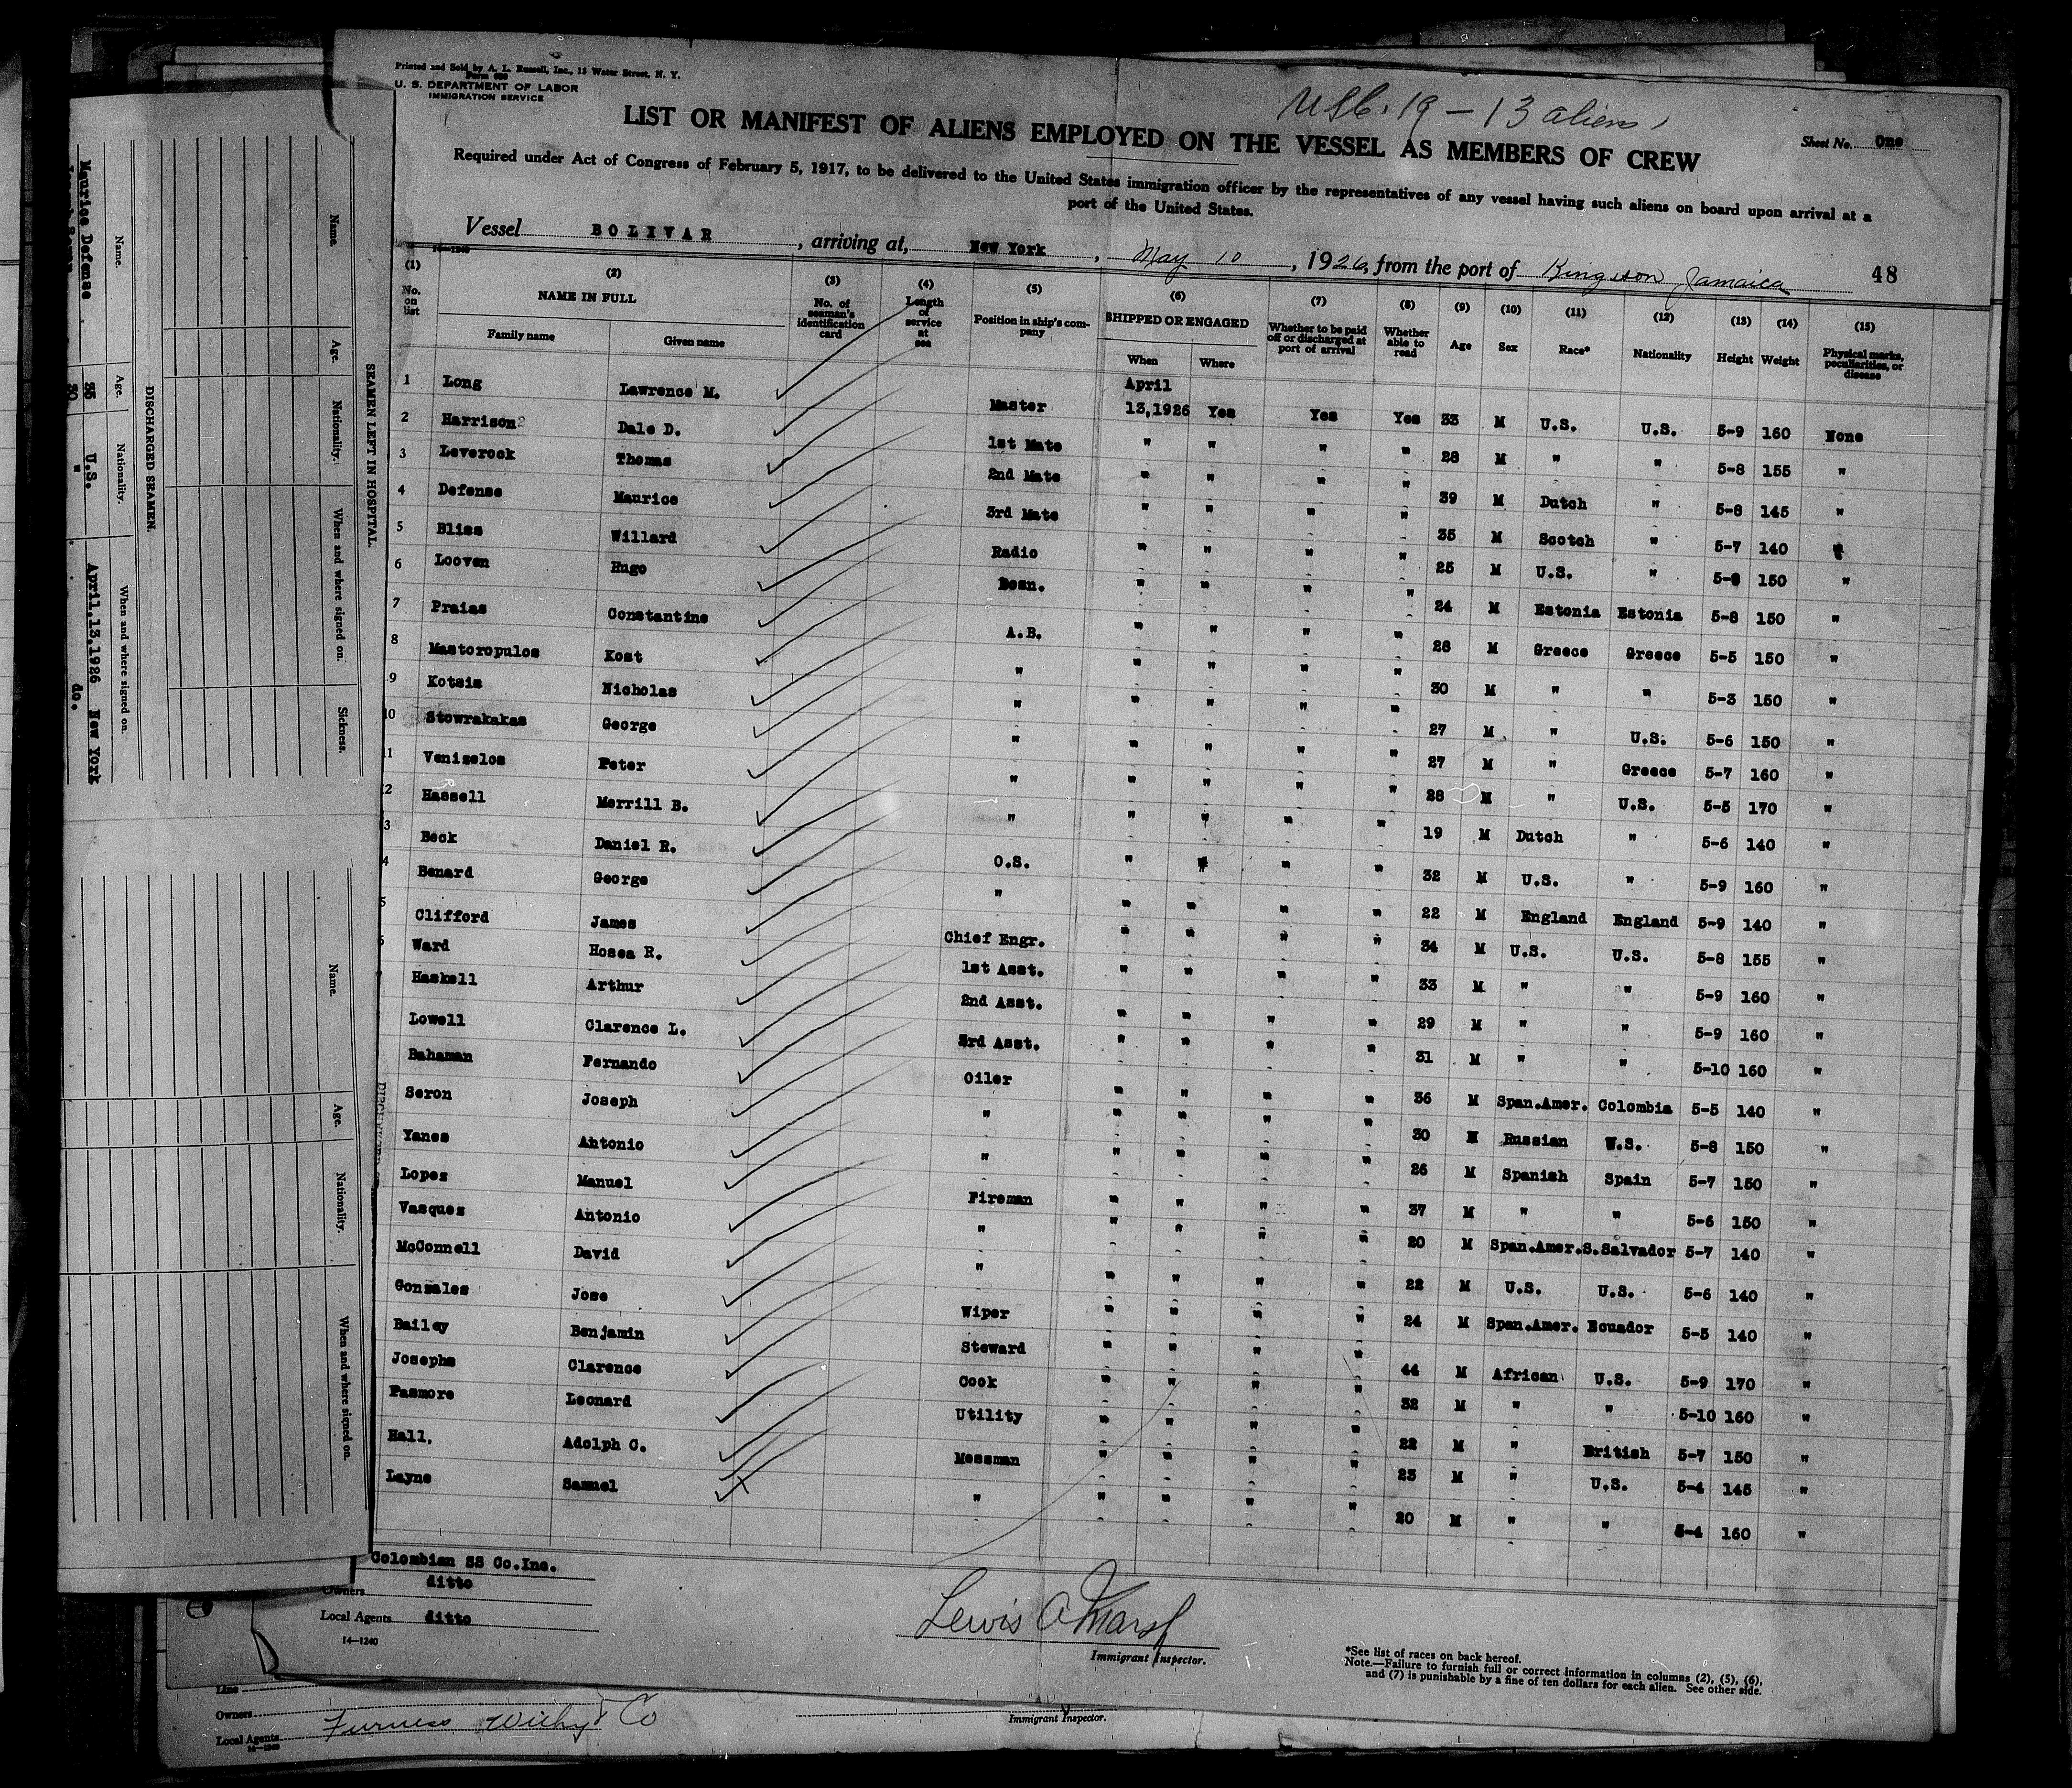 Printed and Sold by A. L. Russell, Inc., 13 Water Street, N. Y.
U. S. DEPARTMENT OF LABOR
IMMIGRATION SERVICE
19 - 13 aliens
LIST OR MANIFEST OF ALIENS EMPLOYED ON THE VESSEL AS MEMBERS OF CREW
Sheet No. One
Required under Act of Congress of February 5, 1917, to be delivered to the United States immigration officer by the representatives of any vessel having such aliens on board upon arrival at a
port of the United States.
Vessel BOLIVAR, arriving at, New York, May 10, 1926, from the port of Kingston Jamaica 48
14-1240
(1) (2) (3) (4) (5) (6) (7) (8) (9) (10) (11) (12) (13) (14) (15)
No. on list NAME IN FULL Family name Given name No. of seaman's identification card Length of service at sea Position in ship's company SHIPPED OR ENGAGED When Where Whether to be paid off or discharged at port of arrival Whether able to read Age Sex Race* Nationality Height Weight Physical marks, peculiarities, or disease
1 Long Lawrence M. Master April 13,1926 Yes Yes Yes 33 M U.S. U.S. 5-9 160 None
2 Harrison Dale D. 1st Mate " " " " 28 M " " 5-8 155 "
3 Leverock Thomas 2nd Mate " " " " 39 M Dutch " 5-8 145 "
4 Defense Maurice 3rd Mate " " " " 35 M Scotch " 5-7 140 "
5 Bliss Willard Radio " " " " 25 M U.S. " 150 "
6 Looven Hugo Bosn. " " " " 24 M Estonia Estonia 5-8 150 "
7 Praias Constantine A.B. " " " " 28 M Greece Greece 5-5 150 "
8 Mastoropulos Kost " " " " " 30 M " " 5-3 150 "
9 Kotsis Nicholas " " " " " 27 M " U.S. 5-6 150 "
10 Stowrakakas George " " " " " 27 M " Greece 5-7 160 "
11 Venizelos Peter " " " " " 28 M " U.S. 5-5 170 "
12 Hassell Merrill B. " " " " " 19 M Dutch " 5-6 140 "
13 Beck Daniel R. O.S. " " " " 32 M U.S. " 5-9 160 "
4 Benard George " " " " " 22 M England England 5-9 140 "
5 Clifford James Chief Engr. " " " " 34 M U.S. U.S. 5-8 155 "
Ward Hosea R. 1st Asst. " " " " 33 M " " 5-9 160 "
Haskell Arthur 2nd Asst. " " " " 29 M " " 5-9 160 "
Lowell Clarence L. 3rd Asst. " " " " 31 M " " 5-10 160 "
Bahaman Fernando Oiler " " " " 36 M Span.Amer. Colombia 5-5 140 "
Seron Joseph " " " " " 30 M Russian U.S. 5-8 150 "
Yanes Antonio " " " " " 26 M Spanish Spain 5-7 150 "
Lopez Manuel Fireman " " " " 37 M " " 5-6 150 "
Vasques Antonio " " " " " 20 M Span.Amer. S.Salvador 5-7 140 "
McConnell David " " " " " 22 M U.S. U.S. 5-6 140 "
Gonzales Jose Wiper " " " " 24 M Span.Amer. Ecuador 5-5 140 "
Bailey Benjamin Steward " " " " 44 M African U.S. 5-9 170 "
Josephs Clarence Cook " " " " 32 M " " 5-10 160 "
Pasmore Leonard Utility " " " " 22 M " British 5-7 150 "
Hall, Adolph C. Messman " " " " 23 M " U.S. 5-4 145 "
Layne Samuel " " " " " 20 M " " 5-4 160 "
Colombian SS Co.Inc.
Owners ditto
Local Agents ditto
14-1240
Lewis A Marsh
Immigrant Inspector.
*See list of races on back hereof.
Note.—Failure to furnish full or correct information in columns (2), (5), (6),
and (7) is punishable by a fine of ten dollars for each alien. See other side.
Line
Owners
Local Agents Furness Withy & Co
14-1240
Immigrant Inspector.
SEAMEN LEFT IN HOSPITAL.
Name. Age. Nationality. When and where signed on. Sickness.
DISCHARGED SEAMEN.
Name. Age. Nationality. When and where signed on.
Maurice Defense 35 U.S. April,13,1926 New York
30 " do.
Name. Age. Nationality. When and where signed on.